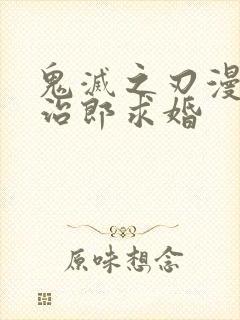 鬼滅之刃漫
治郎求婚
原味想念